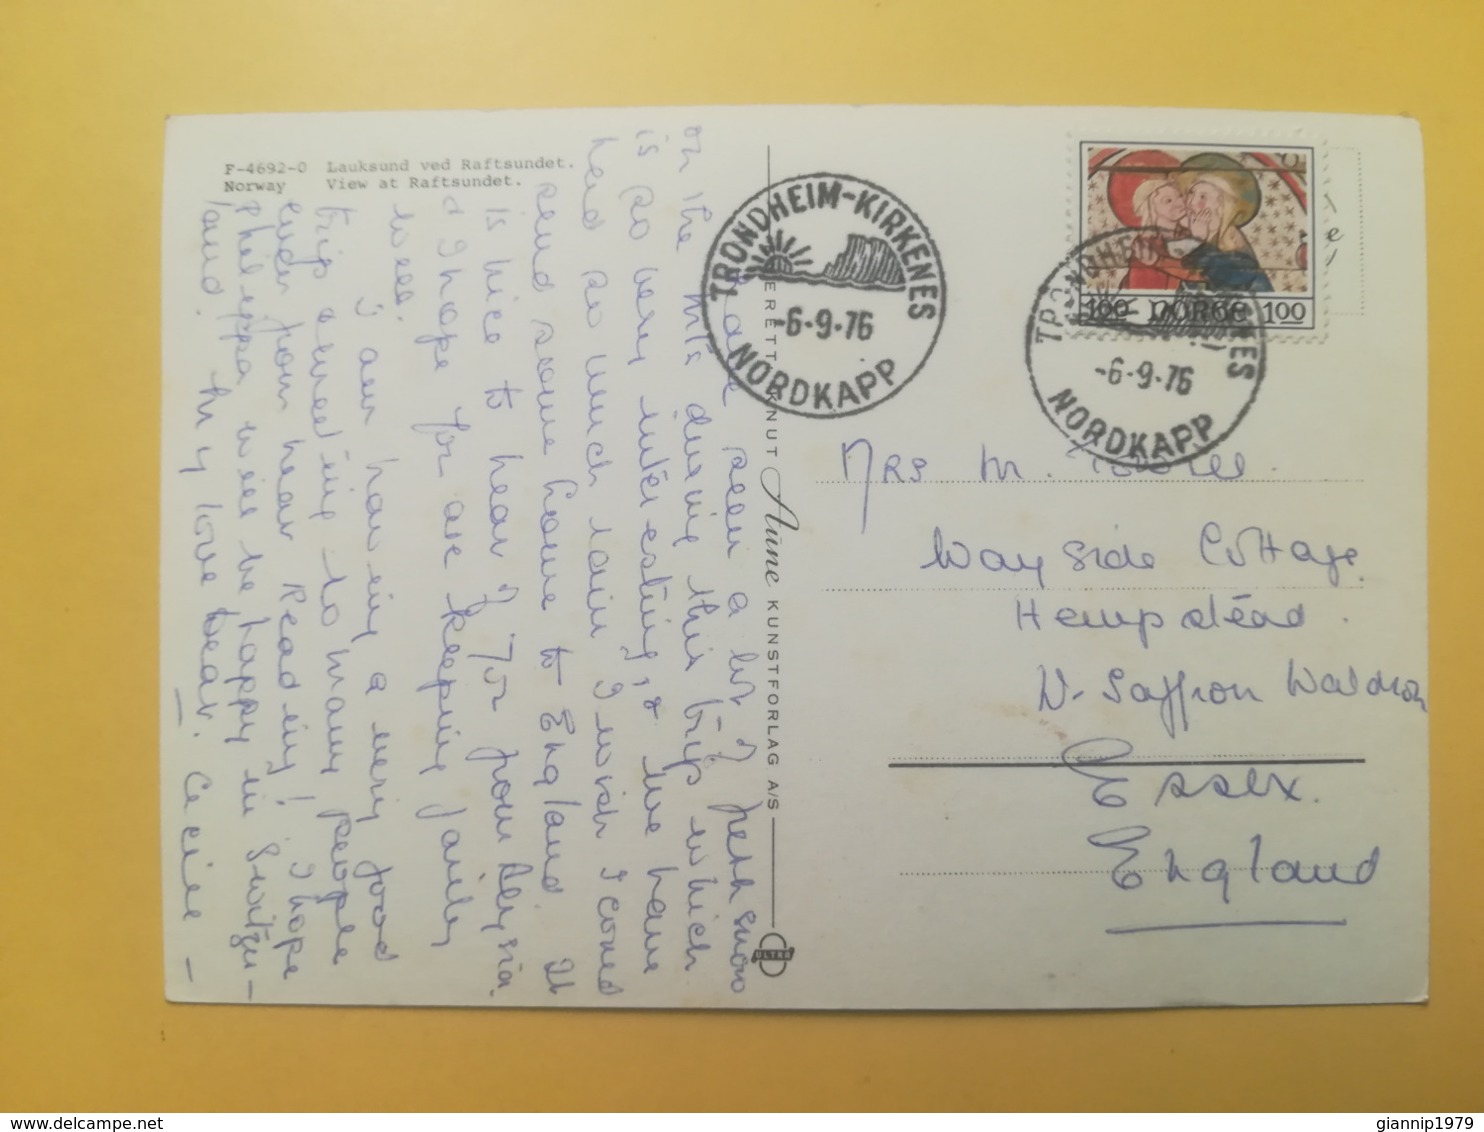 F-4692-0 Lauksund ved Raftsundet.
Norway View at Raftsundet.
have seen a lot of fresh snow
on the mts during this trip which
is so very interesting, & we have
had so much rain I wish I could
send some home to England. It
is nice to hear of
I hope for are keeping fairly
well.
I am having a very good
trip & meeting so many people
under your near Reading! I hope
Philippa will be happy in Switzer-
land. My love bear. Cecile -
ENERETT: KNUT Aune KUNSTFORLAG A/S
ULTRA
TRONDHEIM-KIRKENES
-6-9-76
NORDKAPP
100 NORGE 100
TRONDHEIM-KIRKENES
-6-9-76
NORDKAPP
Mrs M.
Wayside Cottage.
Hempstead.
N. Saffron Waldron
Essex.
England
giannip1979